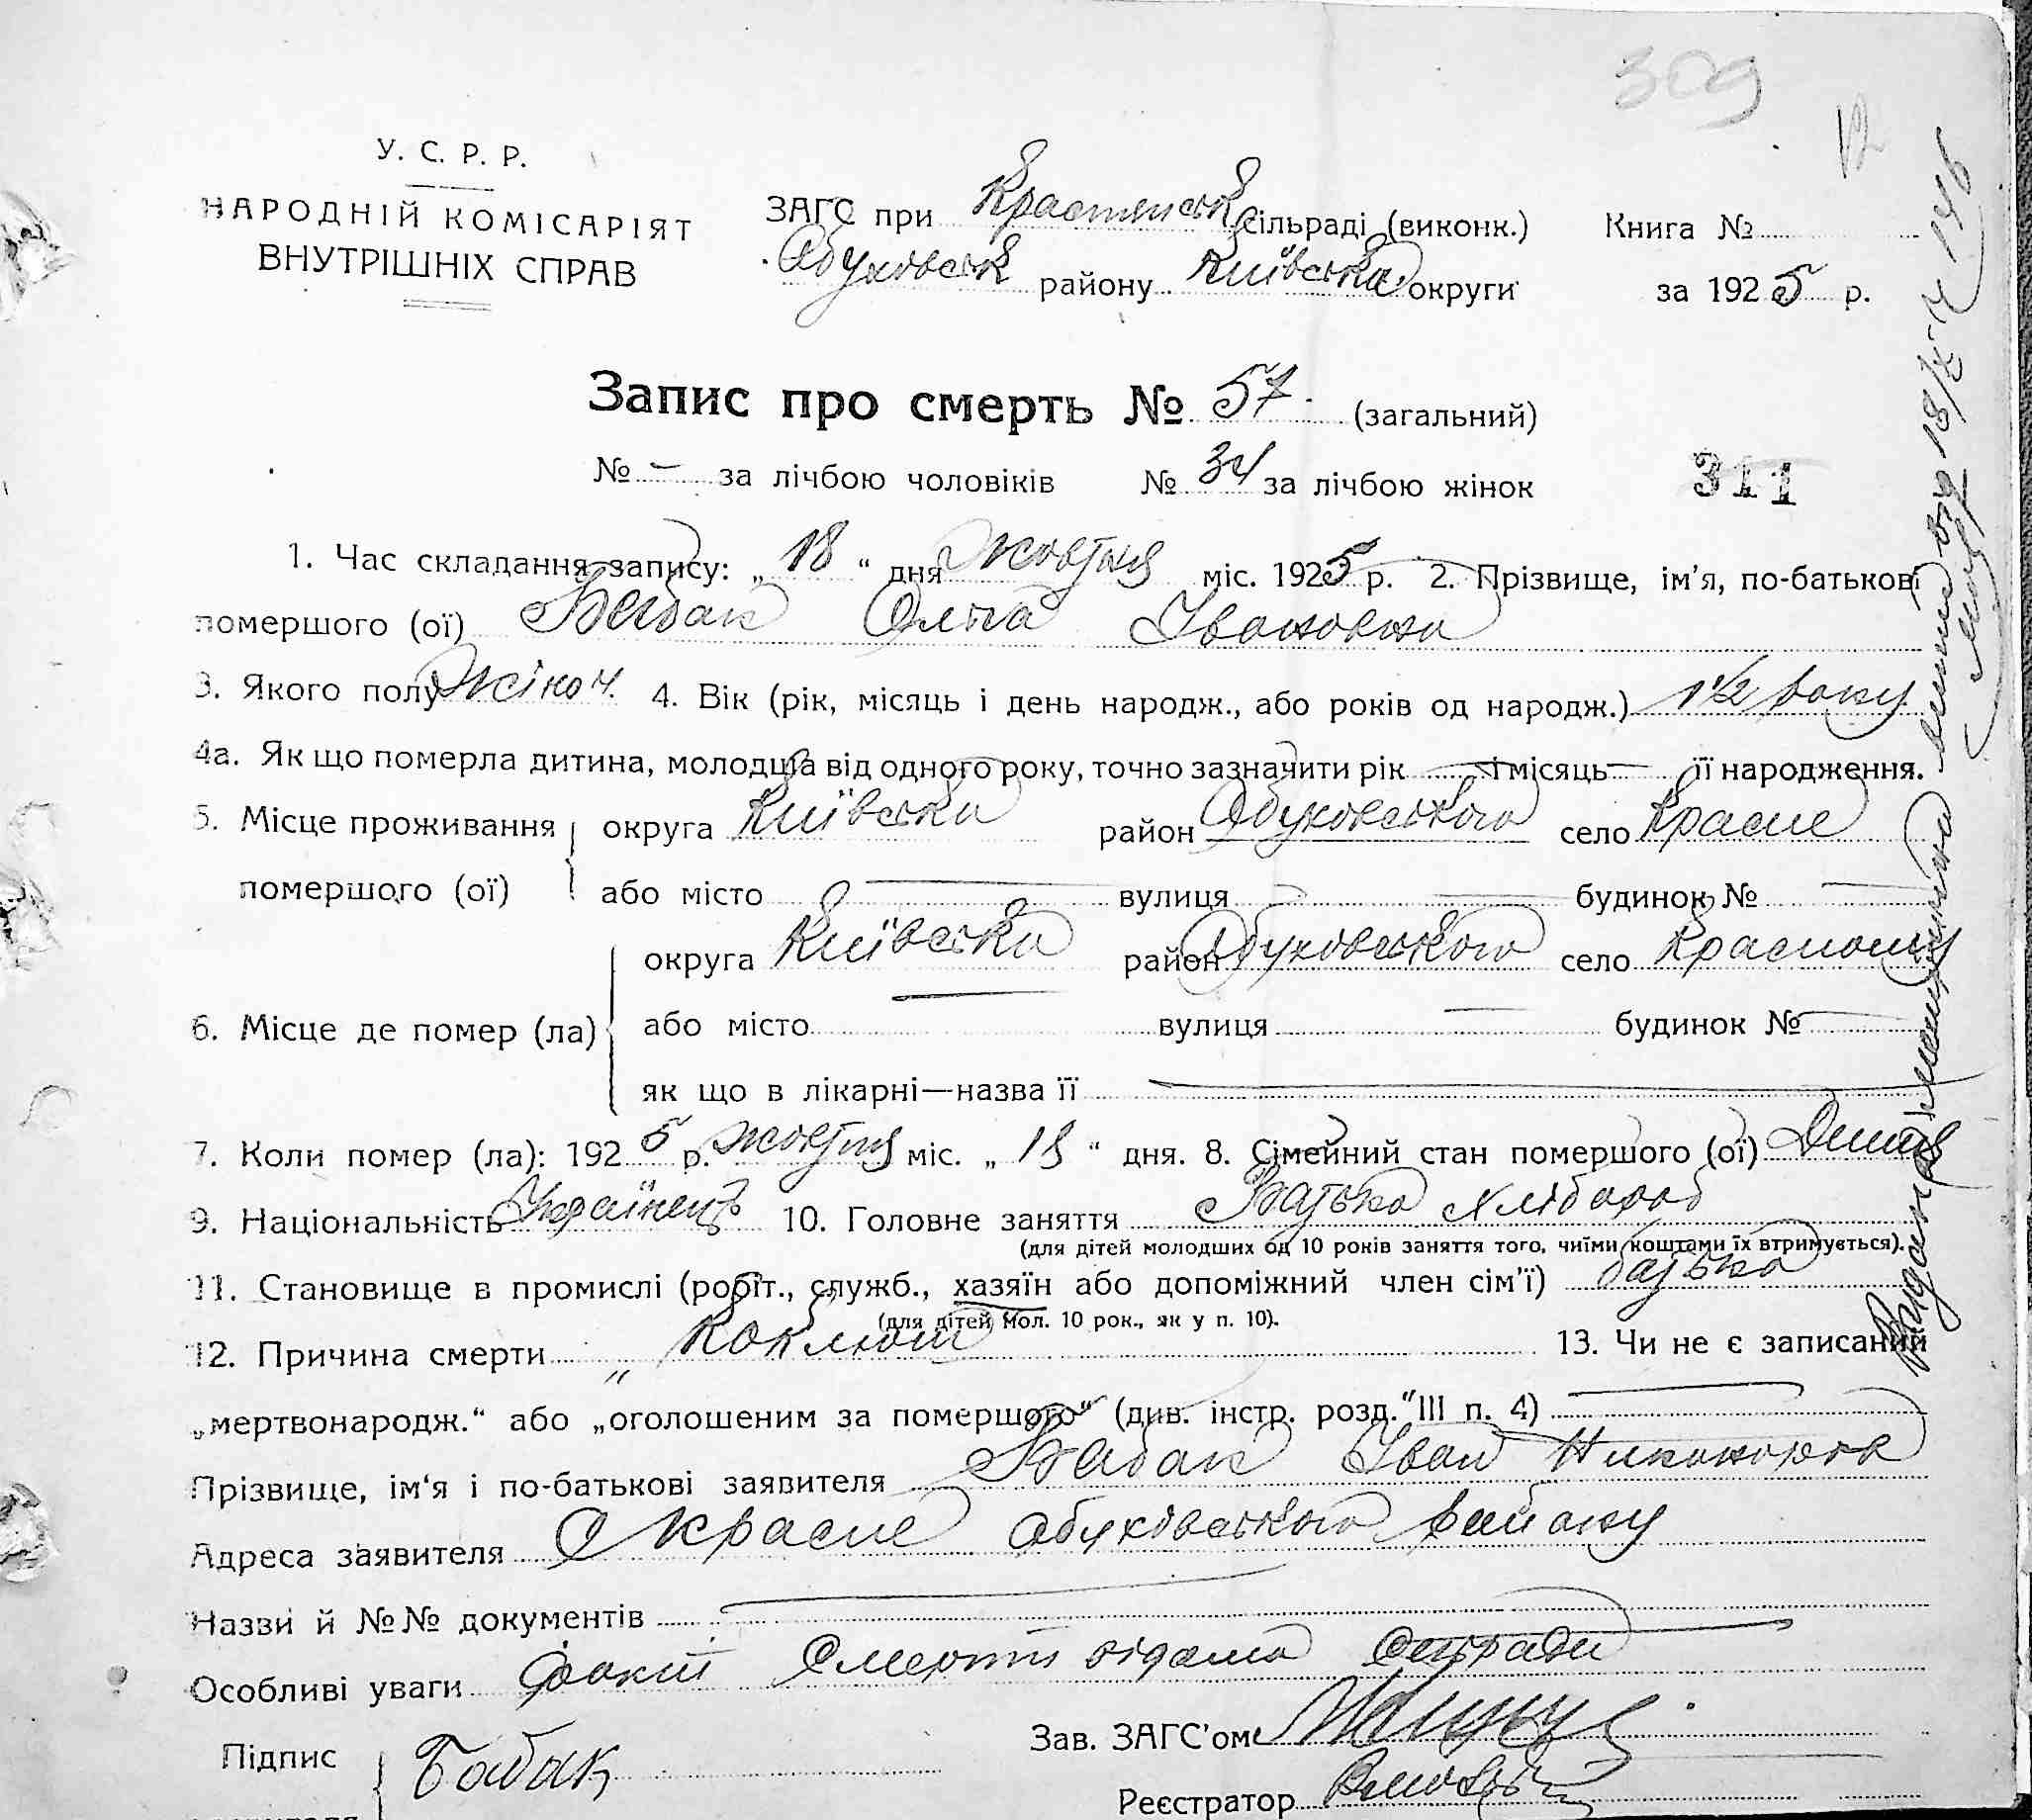 309
12
У. С. Р. Р.
НАРОДНІЙ КОМІСАРІЯТ
ВНУТРІШНІХ СПРАВ
ЗАГС при Краснянськ сільраді (виконк.) Книга №
Обуховськ району Київська округи за 1925 р.
Запис про смерть № 57 (загальний)
№ — за лічбою чоловіків № 34 за лічбою жінок
311
1. Час складання запису: „ 18 “ дня Жовтня міс. 1925 р. 2. Прізвище, ім’я, по-батькові
помершого (ої) Бабак Ольга Івановна
3. Якого полу Жіноч. 4. Вік (рік, місяць і день народж., або років од народж.) 1 1/2 року
4а. Як що померла дитина, молодша від одного року, точно зазначити рік — і місяць — її народження.
5. Місце проживання округа Київська район Обуховського село Красне
помершого (ої) або місто — вулиця — будинок № —
округа Київська район Обуховського село Красному
6. Місце де помер (ла) або місто — вулиця — будинок № —
як що в лікарні—назва її —
7. Коли помер (ла): 1925 р. жовтня міс. „ 18 “ дня. 8. Сімейний стан помершого (ої) Дитя
9. Національність Українець 10. Головне заняття Батько хлібороб
(для дітей молодших од 10 років заняття того, чиїми коштами їх втримується).
11. Становище в промислі (робіт., служб., хазяїн або допоміжний член сім’ї) батько
(для дітей мол. 10 рок., як у п. 10).
12. Причина смерти „Коклюш“ 13. Чи не є записаний
„мертвонародж.“ або „оголошеним за помершого“ (див. інстр. розд. III п. 4) —
Прізвище, ім‘я і по-батькові заявителя Бабак Іван
Адреса заявителя С Красне Обуківського району
Назви й №№ документів —
Особливі уваги Факт смерти відома сельради
Підпис Бабак Зав. ЗАГС’ом
Реєстратор
18/X 146